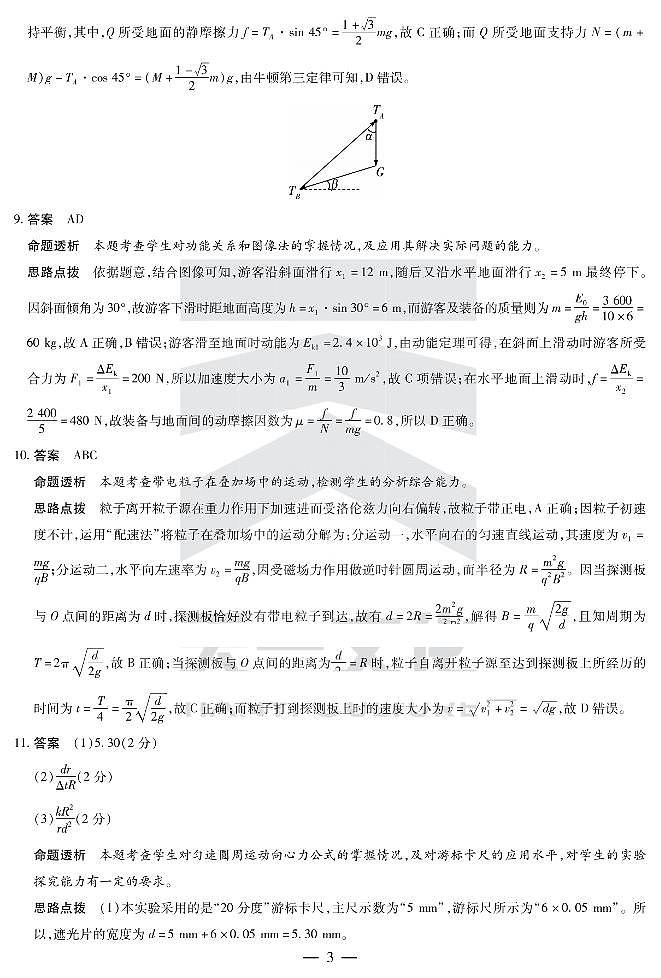 持平衡,其中,Q 所受地面的静摩擦力 f = T_A · sin 45° = (1+√3)/2 mg,故 C 正确;而 Q 所受地面支持力 N = (m +
M)g − T_A · cos 45° = (M + (1−√3)/2 m)g,由牛顿第三定律可知,D 错误。
T_A
α
G
T_B
β
9. 答案 AD
命题透析 本题考查学生对功能关系和图像法的掌握情况,及应用其解决实际问题的能力。
思路点拨 依据题意,结合图像可知,游客沿斜面滑行 x₁ = 12 m,随后又沿水平地面滑行 x₂ = 5 m 最终停下。
因斜面倾角为 30°,故游客下滑时距地面高度为 h = x₁ · sin 30° = 6 m,而游客及装备的质量则为 m = E₀/gh = 3 600/(10×6) =
60 kg,故 A 正确,B 错误;游客滑至地面时动能为 E_k1 = 2.4×10³ J,由动能定理可得,在斜面上滑动时游客所受
合力为 F₁ = ΔE_k/x₁ = 200 N,所以加速度大小为 a₁ = F₁/m = 10/3 m/s²,故 C 项错误;在水平地面上滑动时,f = ΔE_k/x₂ =
2 400/5 = 480 N,故装备与地面间的动摩擦因数为 μ = f/N = f/mg = 0.8,所以 D 正确。
10. 答案 ABC
命题透析 本题考查带电粒子在叠加场中的运动,检测学生的分析综合能力。
思路点拨 粒子离开粒子源在重力作用下加速进而受洛伦兹力向右偏转,故粒子带正电,A 正确;因粒子初速
度不计,运用“配速法”将粒子在叠加场中的运动分解为:分运动一,水平向右的匀速直线运动,其速度为 v₁ =
mg/qB;分运动二,水平向左速率为 v₂ = mg/qB,因受磁场力作用做逆时针圆周运动,而半径为 R = m²g/q²B²。因当探测板
与 O 点间的距离为 d 时,探测板恰好没有带电粒子到达,故有 d = 2R = 2m²g/,解得 B = m/q √(2g/d),且知周期为
T = 2π √(d/2g),故 B 正确;当探测板与 O 点间的距离为 d/ = R 时,粒子自离开粒子源至达到探测板上所经历的
时间为 t = T/4 = π/2 √(d/2g),故 C 正确;而粒子打到探测板上时的速度大小为 v = √(v₁²+v₂²) = √(dg),故 D 错误。
11. 答案 (1)5.30(2 分)
(2) dr/ΔtR (2 分)
(3) kR²/rd² (2 分)
命题透析 本题考查学生对匀速圆周运动向心力公式的掌握情况,及对游标卡尺的应用水平,对学生的实验
探究能力有一定的要求。
思路点拨 (1)本实验采用的是“20 分度”游标卡尺,主尺示数为“5 mm”,游标尺所示为“6×0.05 mm”。所
以,遮光片的宽度为 d = 5 mm + 6×0.05 mm = 5.30 mm。
— 3 —